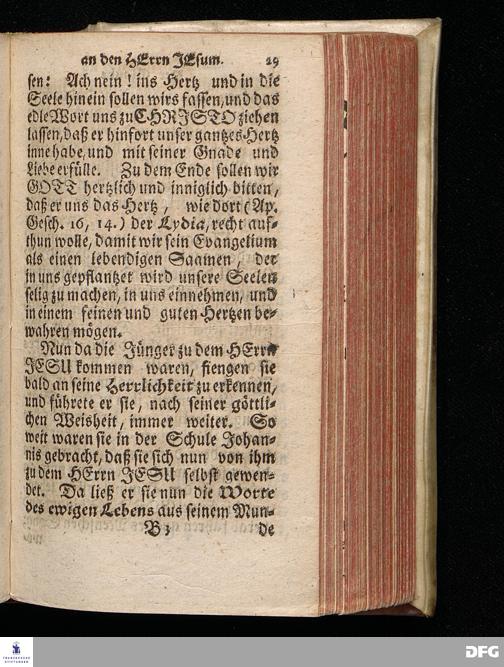 an den HErrn JEsum. 29
sen: Ach nein! ins Hertz und in die
Seele hinein sollen wirs fassen, und das
edle Wort uns zu CHRISTO ziehen
lassen, daß er hinfort unser gantzes Hertz
inne habe, und mit seiner Gnade und
Liebe erfülle. Zu dem Ende sollen wir
GOTT hertzlich und inniglich bitten,
daß er uns das Hertz, wie dort (Ap.
Gesch. 16, 14.) der Lydia, recht auf-
thun wolle, damit wir sein Evangelium
als einen lebendigen Saamen, der
in uns gepflantzet wird unsere Seelen
selig zu machen, in uns einnehmen, und
in einem feinen und guten Hertzen be-
wahren mögen.
Nun da die Jünger zu dem HErrn
JESU kommen waren, fiengen sie
bald an seine Herrlichkeit zu erkennen,
und führete er sie, nach seiner göttli-
chen Weisheit, immer weiter. So
weit waren sie in der Schule Johan-
nis gebracht, daß sie sich nun von ihm
zu dem HErrn JESU selbst gewen-
det. Da ließ er sie nun die Worte
des ewigen Lebens aus seinem Mun-
B 3 de
FRANCKESCHE
STIFTUNGEN
DFG